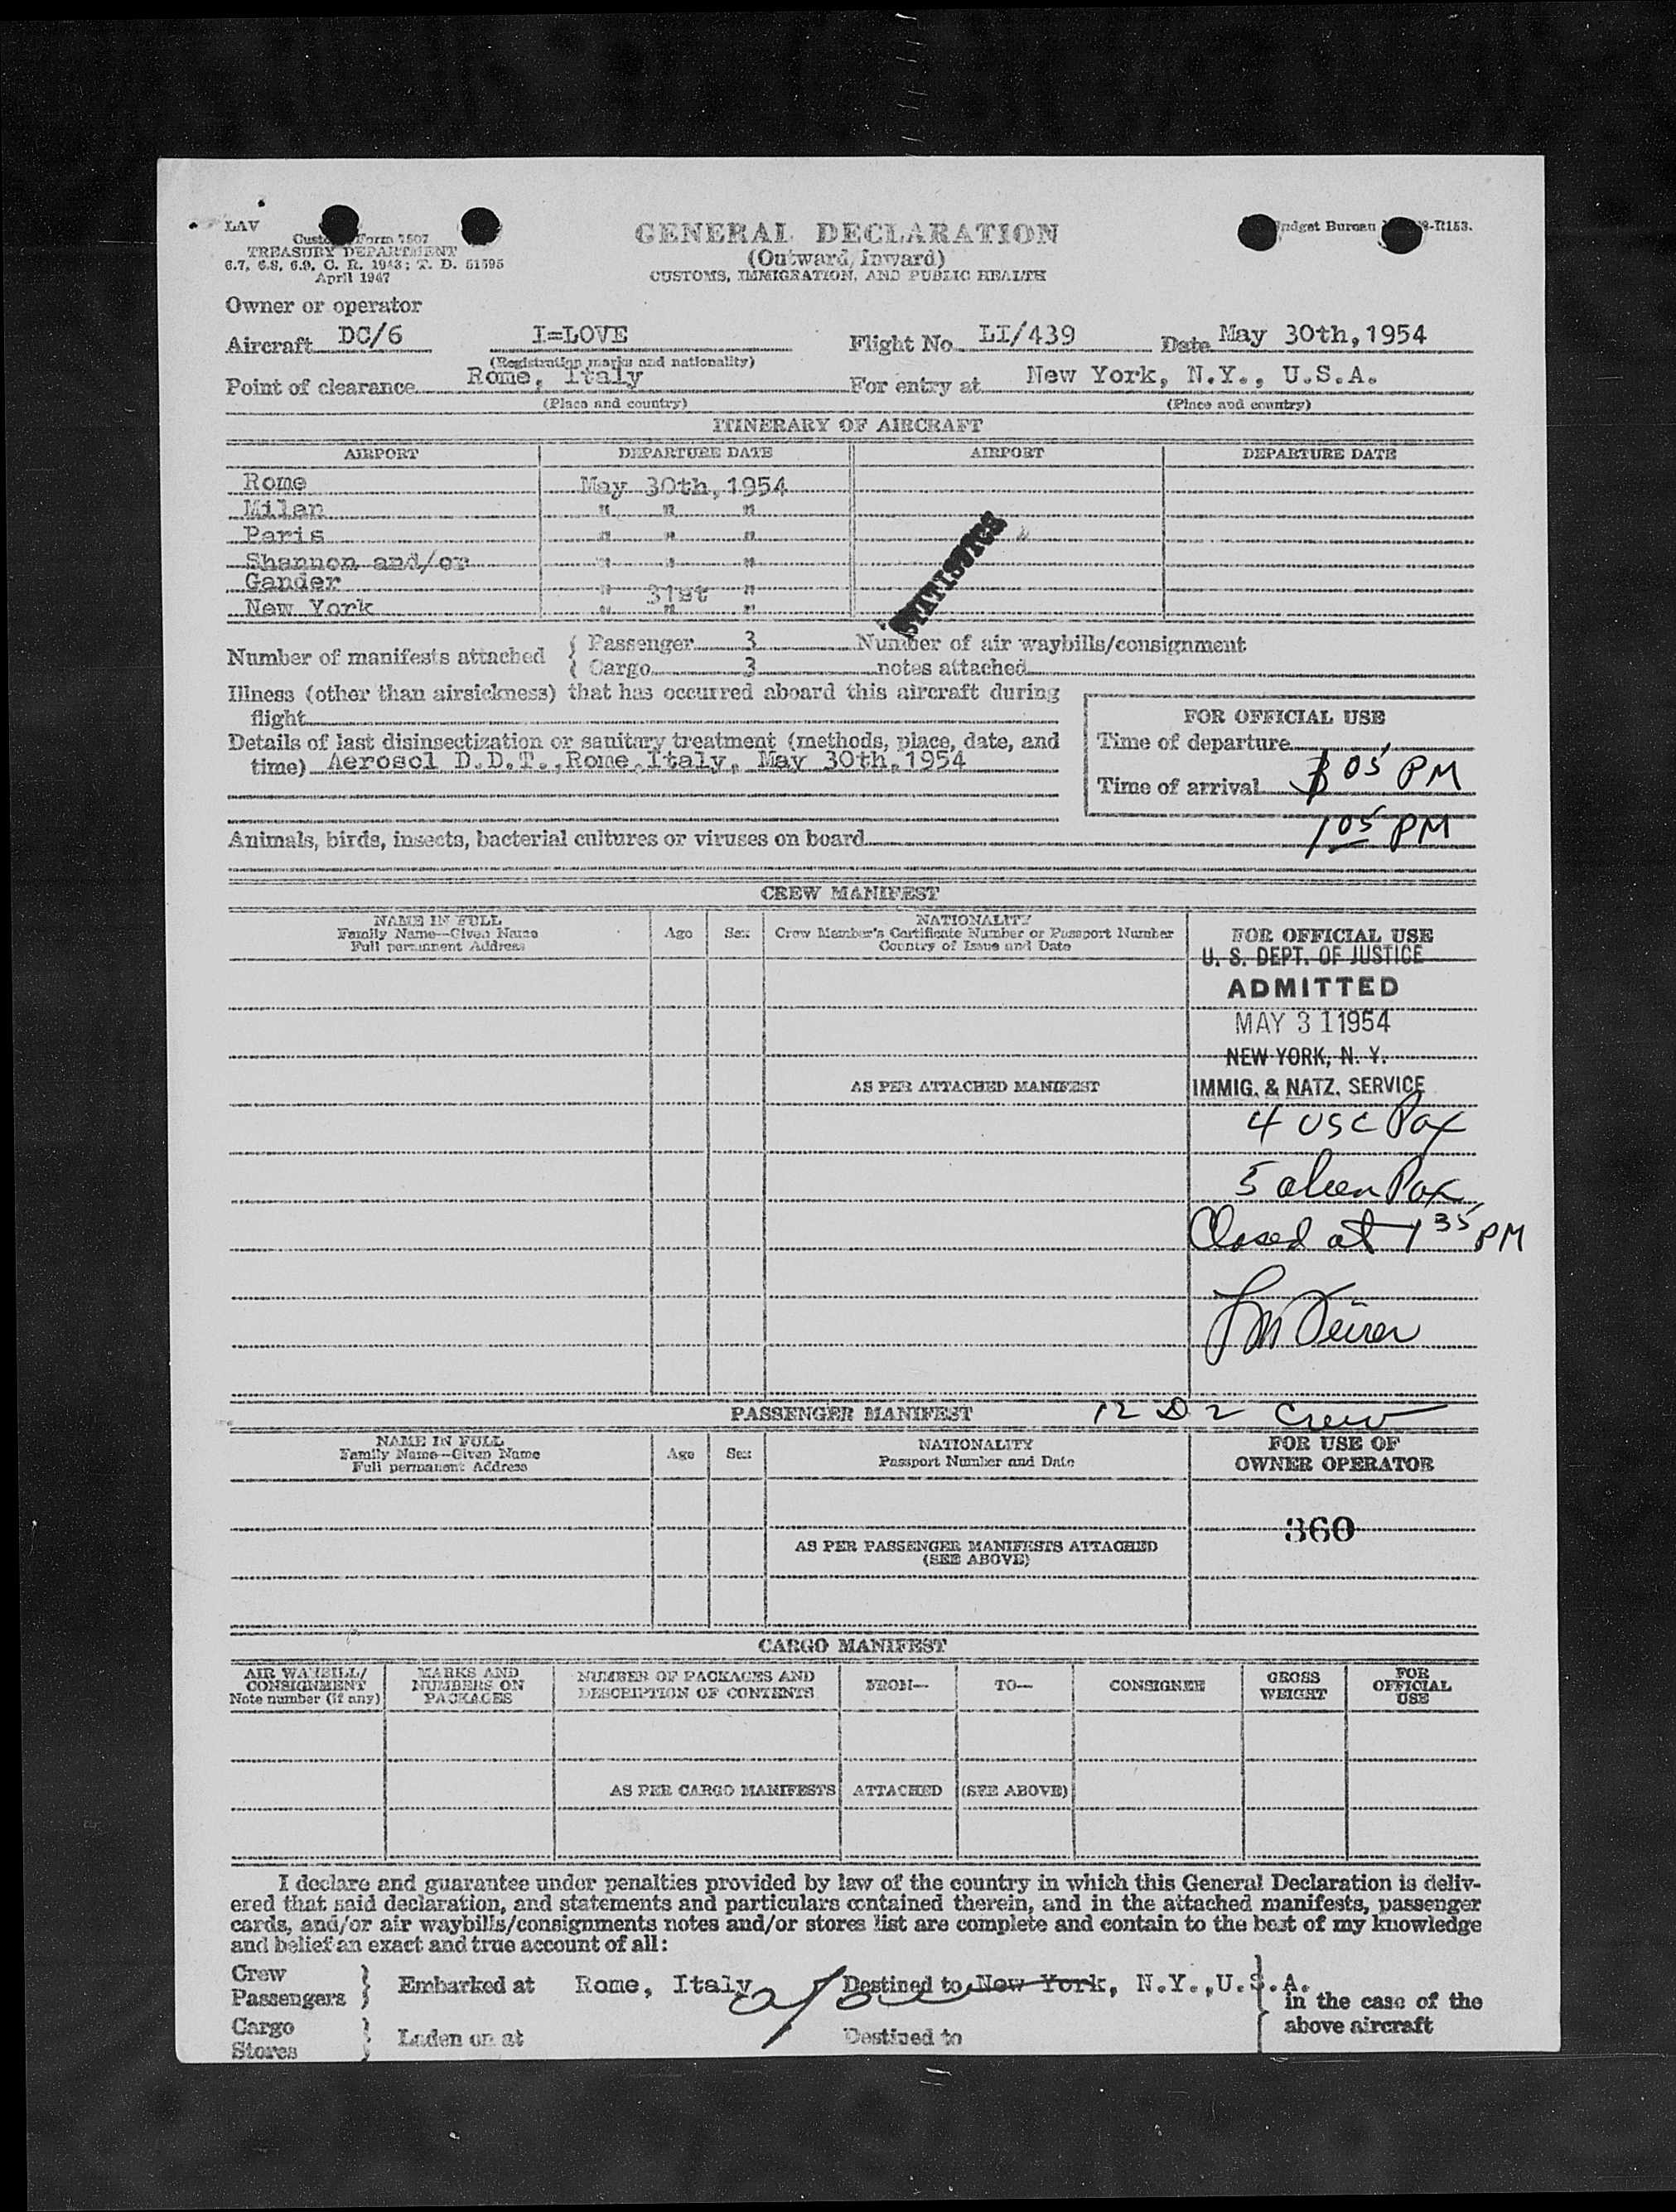 LAV
Customs Form 7507
TREASURY DEPARTMENT
6.7, 6.8, 6.9, C. R. 1943; T. D. 51595
April 1947
GENERAL DECLARATION
(Outward/Inward)
CUSTOMS, IMMIGRATION, AND PUBLIC HEALTH
Budget Bureau -R153.
Owner or operator
Aircraft DC/6 I=LOVE Flight No. LI/439 Date May 30th, 1954
(Registration marks and nationality)
Point of clearance Rome, Italy For entry at New York, N.Y., U.S.A.
(Place and country) (Place and country)
ITINERARY OF AIRCRAFT
AIRPORT DEPARTURE DATE AIRPORT DEPARTURE DATE
Rome May 30th, 1954
Milan " " "
Paris " " "
Shannon and/or " " "
Gander " 31st "
New York " " "
STATISTICS
Number of manifests attached { Passenger 3 Number of air waybills/consignment
{ Cargo 3 notes attached
Illness (other than airsickness) that has occurred aboard this aircraft during
flight
Details of last disinsectization or sanitary treatment (methods, place, date, and
time) Aerosol D.D.T., Rome, Italy, May 30th, 1954
FOR OFFICIAL USE
Time of departure
Time of arrival 05 PM
1 05 PM
Animals, birds, insects, bacterial cultures or viruses on board
CREW MANIFEST
NAME IN FULL
Family Name—Given Name
Full permanent Address
Age Sex
NATIONALITY
Crew Member's Certificate Number or Passport Number
Country of Issue and Date
FOR OFFICIAL USE
U. S. DEPT. OF JUSTICE
ADMITTED
MAY 31 1954
NEW YORK, N. Y.
AS PER ATTACHED MANIFEST
IMMIG. & NATZ. SERVICE
4 USC Pax
5 alien Pax
Closed at 1 35 PM
PASSENGER MANIFEST 12 D 2 Crew
NAME IN FULL
Family Name—Given Name
Full permanent Address
Age Sex
NATIONALITY
Passport Number and Date
FOR USE OF
OWNER OPERATOR
360
AS PER PASSENGER MANIFESTS ATTACHED
(SEE ABOVE)
CARGO MANIFEST
AIR WAYBILL/
CONSIGNMENT
Note number (if any)
MARKS AND
NUMBERS ON
PACKAGES
NUMBER OF PACKAGES AND
DESCRIPTION OF CONTENTS
FROM—
TO—
CONSIGNEE
GROSS
WEIGHT
FOR
OFFICIAL
USE
AS PER CARGO MANIFESTS ATTACHED (SEE ABOVE)
I declare and guarantee under penalties provided by law of the country in which this General Declaration is deliv-
ered that said declaration, and statements and particulars contained therein, and in the attached manifests, passenger
cards, and/or air waybills/consignments notes and/or stores list are complete and contain to the best of my knowledge
and belief an exact and true account of all:
Crew
Passengers } Embarked at Rome, Italy Destined to New York, N.Y.,U.S.A.
in the case of the
above aircraft
Cargo
Stores } Laden on at Destined to